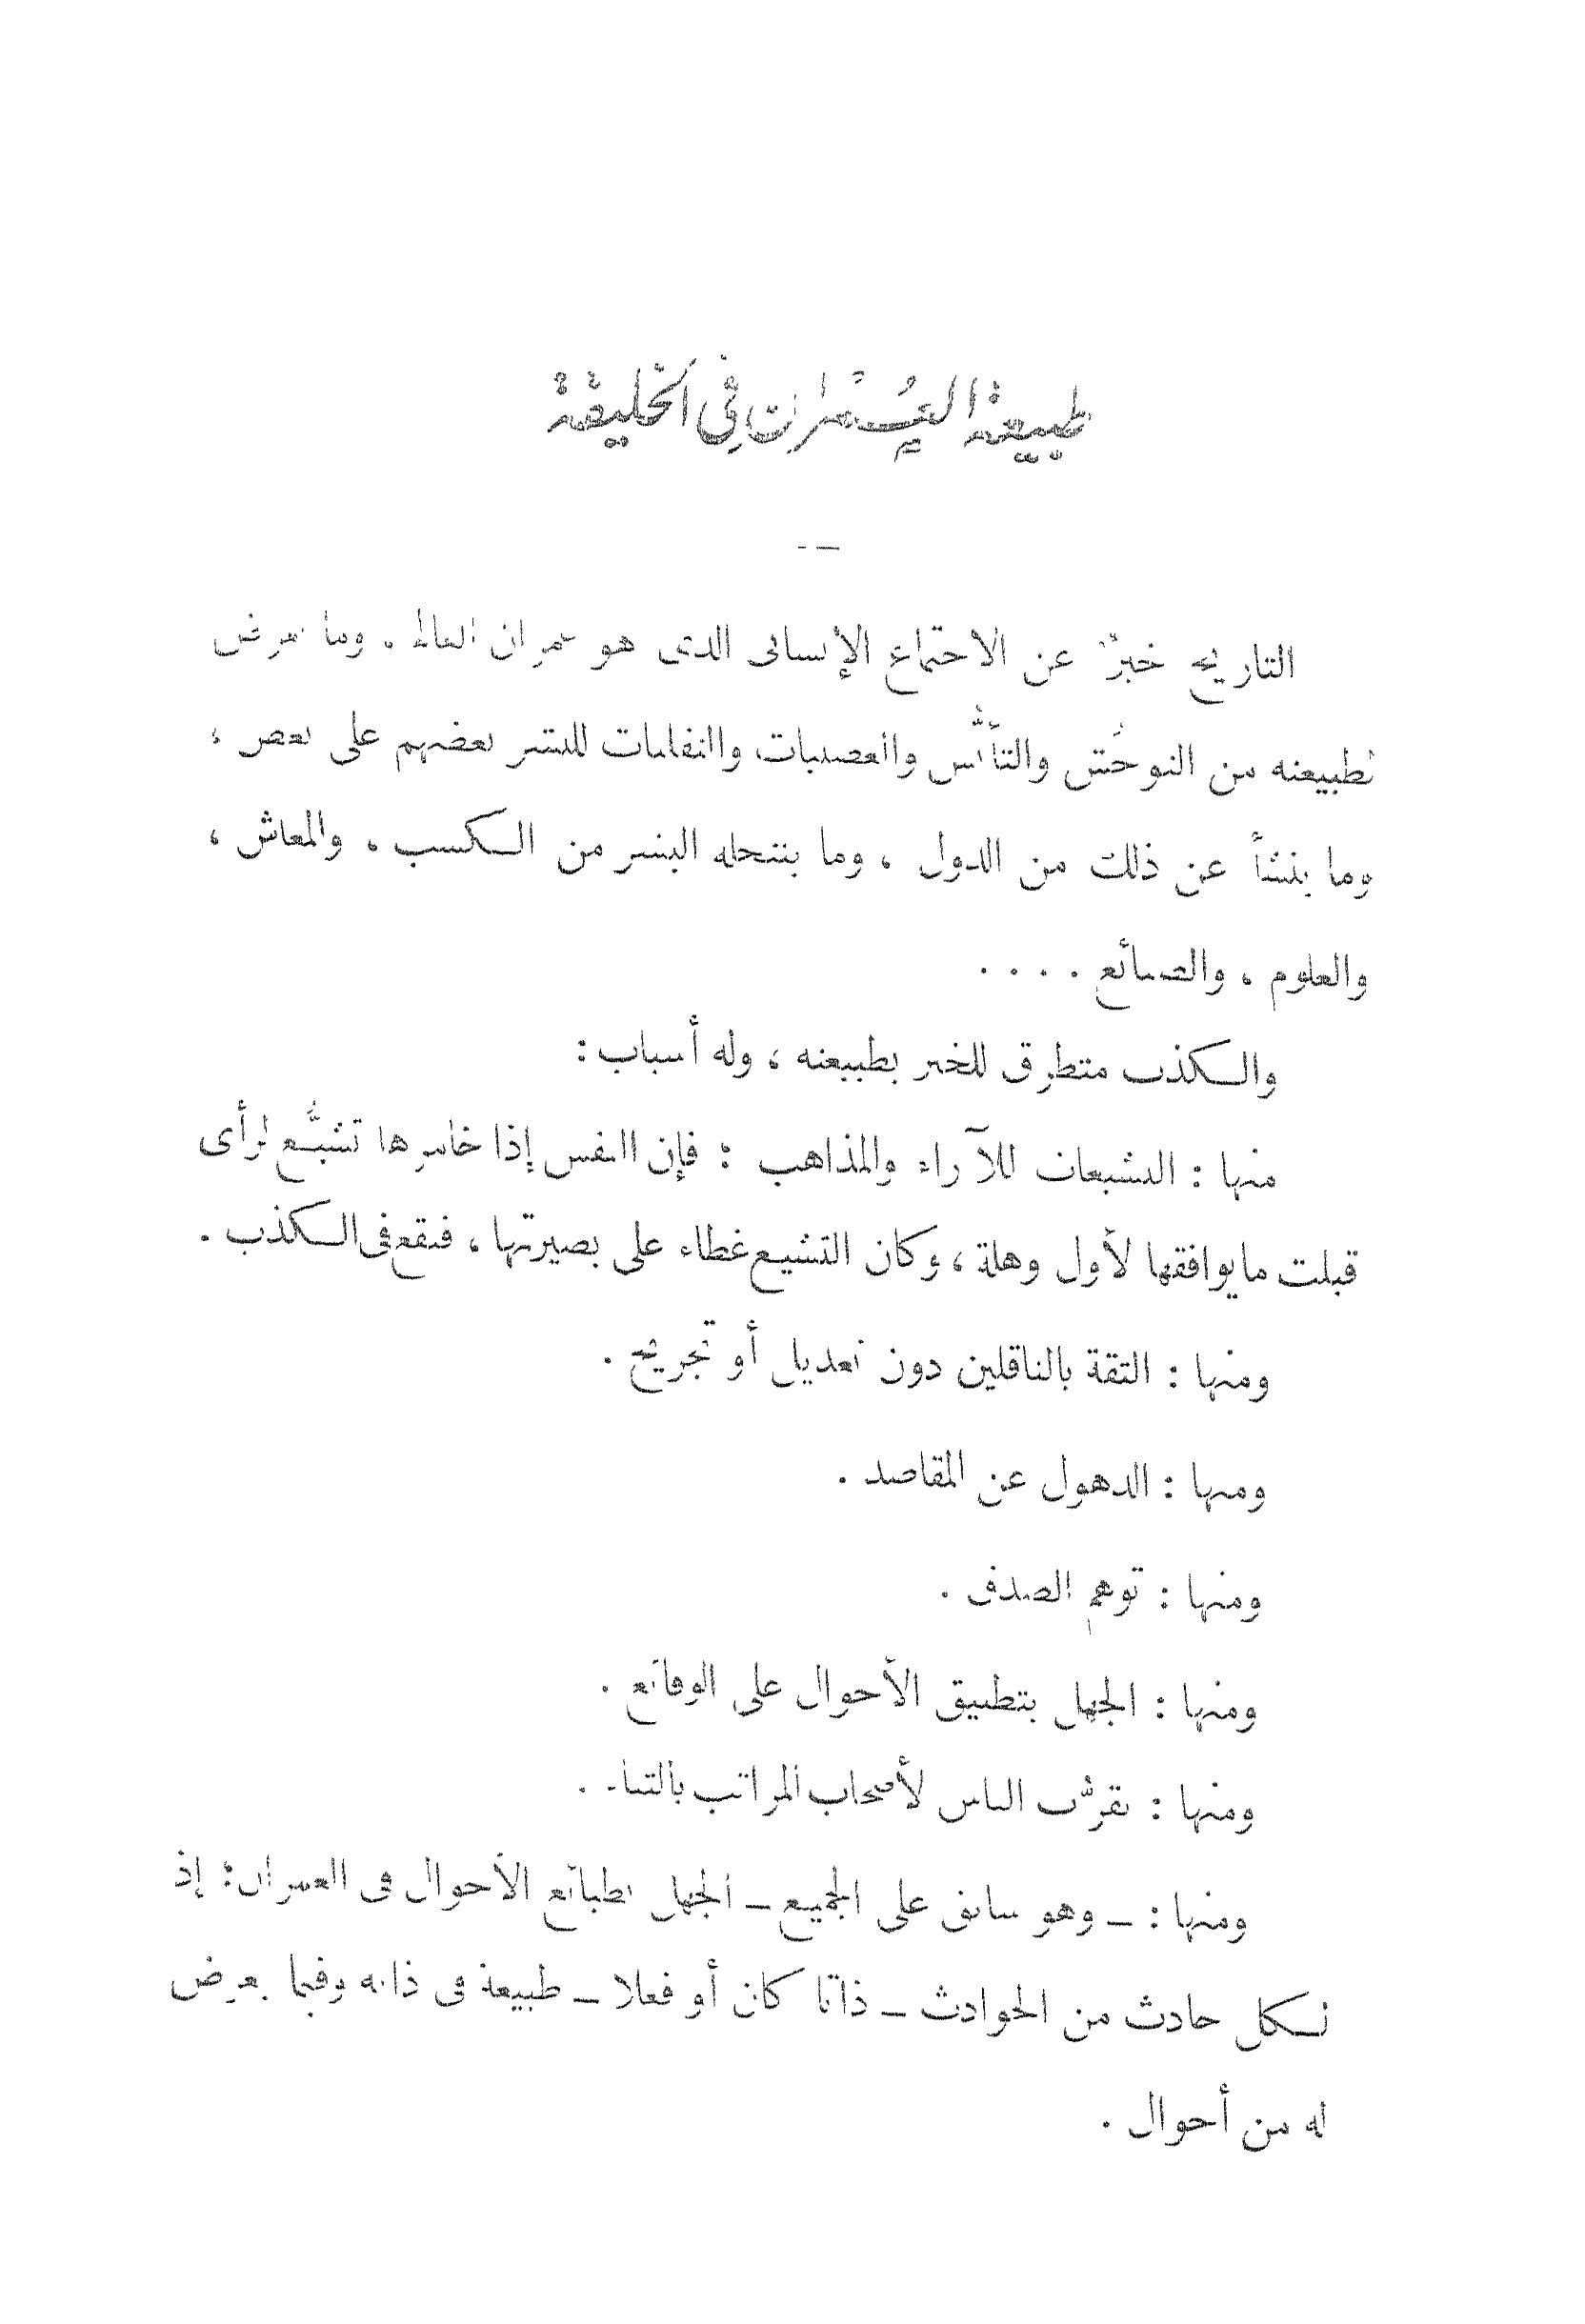 طبيعة العُمْران في الخليقة
التاريخ خبرٌ عن الاجتماع الإنساني الذي هو عمران العالم . وما يعرض
لطبيعته من التوحُّش والتأنُّس والعصبيات والتقلبات للبشر بعضهم على بعض ،
وما ينشأ عن ذلك من الدول ، وما ينتحله البشر من الكسب ، والمعاش ،
والعلوم ، والصنائع . . . .
والكذب متطرق للخبر بطبيعته ، وله أسباب :
منها : التشيعات للآراء والمذاهب : فإن النفس إذا خامرها تشيُّع لرأى
قبلت ما يوافقها لأول وهلة ، وكان التشيع غطاء على بصيرتها ، فتقع فى الكذب .
ومنها : الثقة بالناقلين دون تعديل أو تجريح .
ومنها : الذهول عن المقاصد .
ومنها : توهم الصدق .
ومنها : الجهل بتطبيق الأحوال على الوقائع .
ومنها : تقرُّب الناس لأصحاب المراتب بالثناء .
ومنها : – وهو سابق على الجميع – الجهل بطبائع الأحوال فى العمران ؛ إذ
لكل حادث من الحوادث – ذاتا كان أو فعلا – طبيعة فى ذاته وفيما يعرض
له من أحوال .